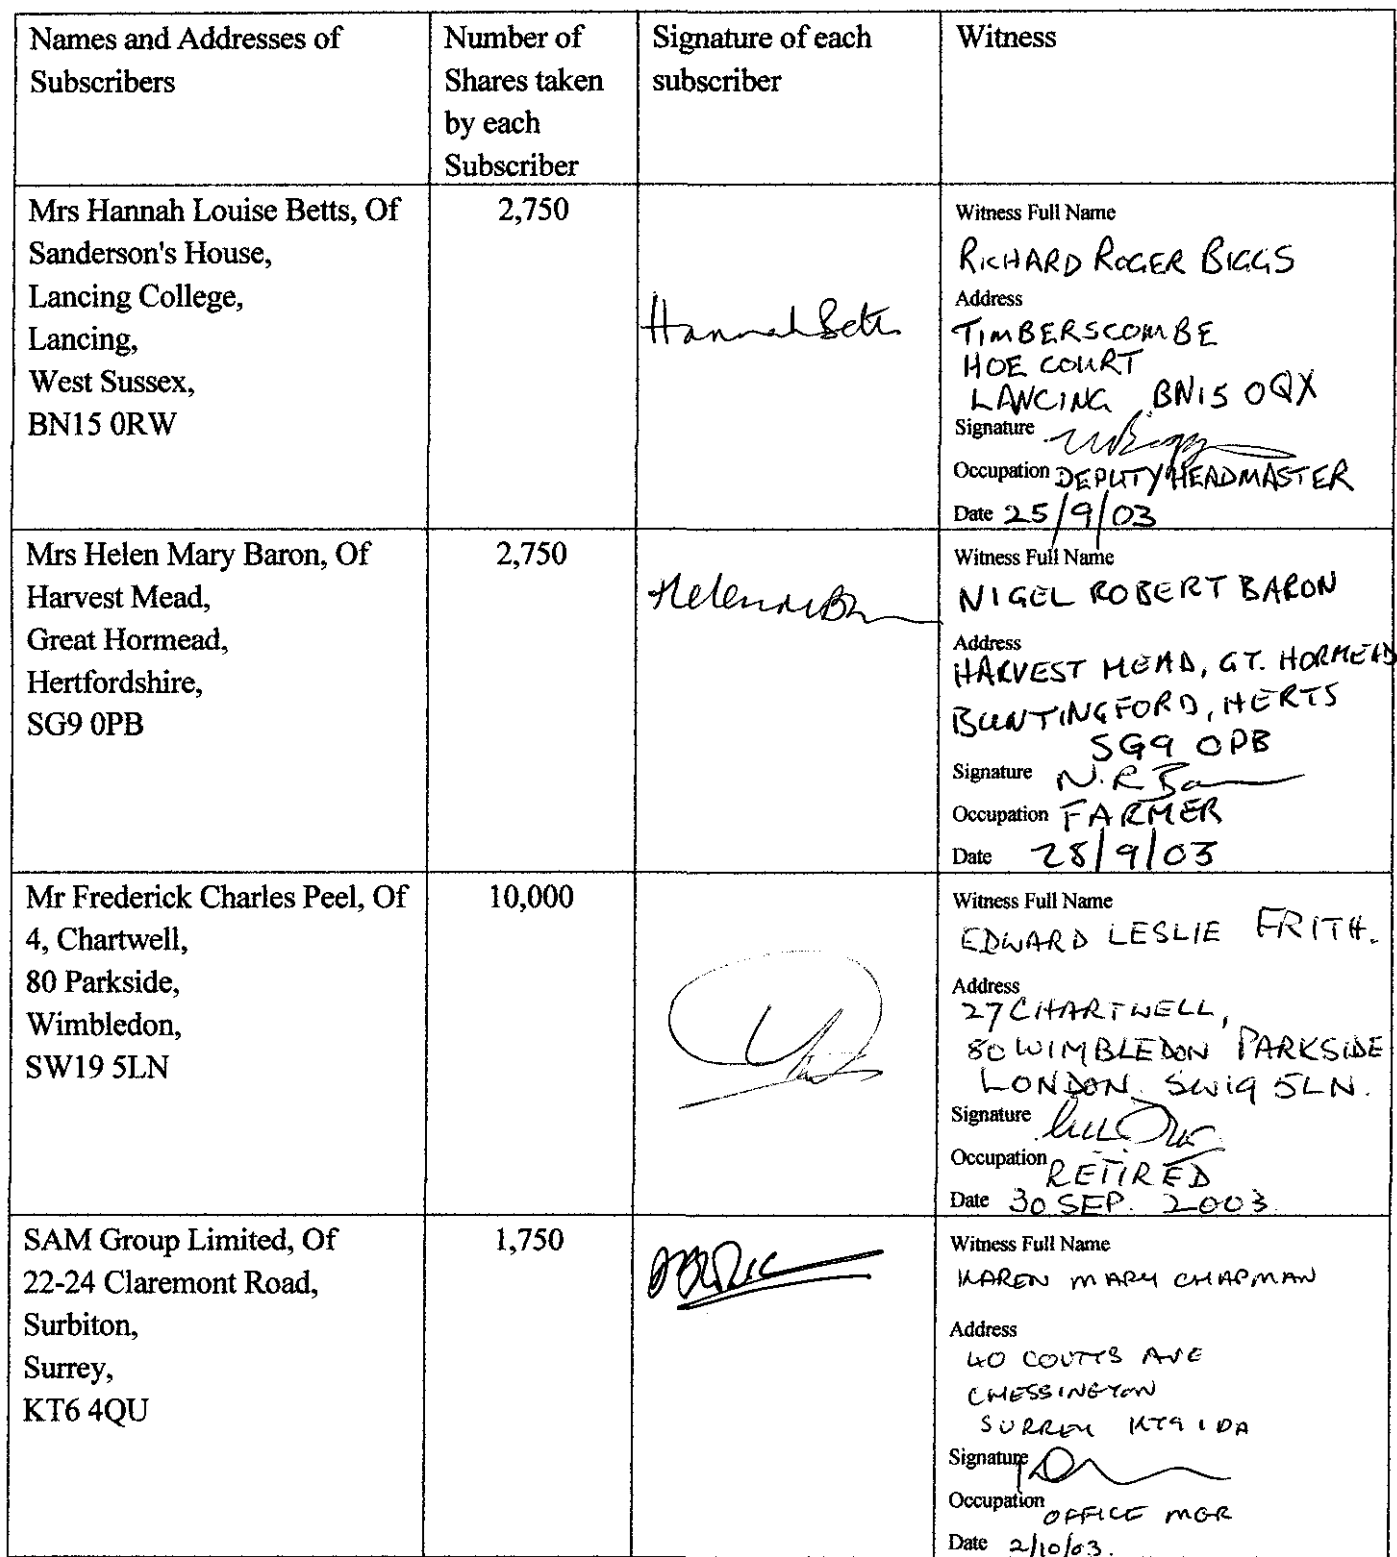 Names and Addresses of
Subscribers
Number of
Shares taken
by each
Subscriber
Signature of each
subscriber
Witness
Mrs Hannah Louise Betts, Of
Sanderson's House,
Lancing College,
Lancing,
West Sussex,
BN15 0RW
2,750
Hannah Betts
Witness Full Name
RICHARD ROGER BIGGS
Address
TIMBERSCOMBE
HOE COURT
LANCING BN15 0QX
Signature
Occupation DEPUTY HEADMASTER
Date 25/9/03
Mrs Helen Mary Baron, Of
Harvest Mead,
Great Hormead,
Hertfordshire,
SG9 0PB
2,750
Witness Full Name
NIGEL ROBERT BARON
Address
HARVEST MEAD, GT. HORMEAD
BUNTINGFORD, HERTS
SG9 0PB
Signature N.R. Ba
Occupation FARMER
Date 28/9/03
Mr Frederick Charles Peel, Of
4, Chartwell,
80 Parkside,
Wimbledon,
SW19 5LN
10,000
Witness Full Name
EDWARD LESLIE FRITH.
Address
27 CHARTWELL,
80 WIMBLEDON PARKSIDE
LONDON. SW19 5LN.
Signature
Occupation RETIRED
Date 30 SEP. 2003
SAM Group Limited, Of
22-24 Claremont Road,
Surbiton,
Surrey,
KT6 4QU
1,750
Witness Full Name
KAREN MARY CHAPMAN
Address
40 COUTTS AVE
CHESSINGTON
SURREY KT9 1DA
Signature
Occupation OFFICE MGR
Date 2/10/03.